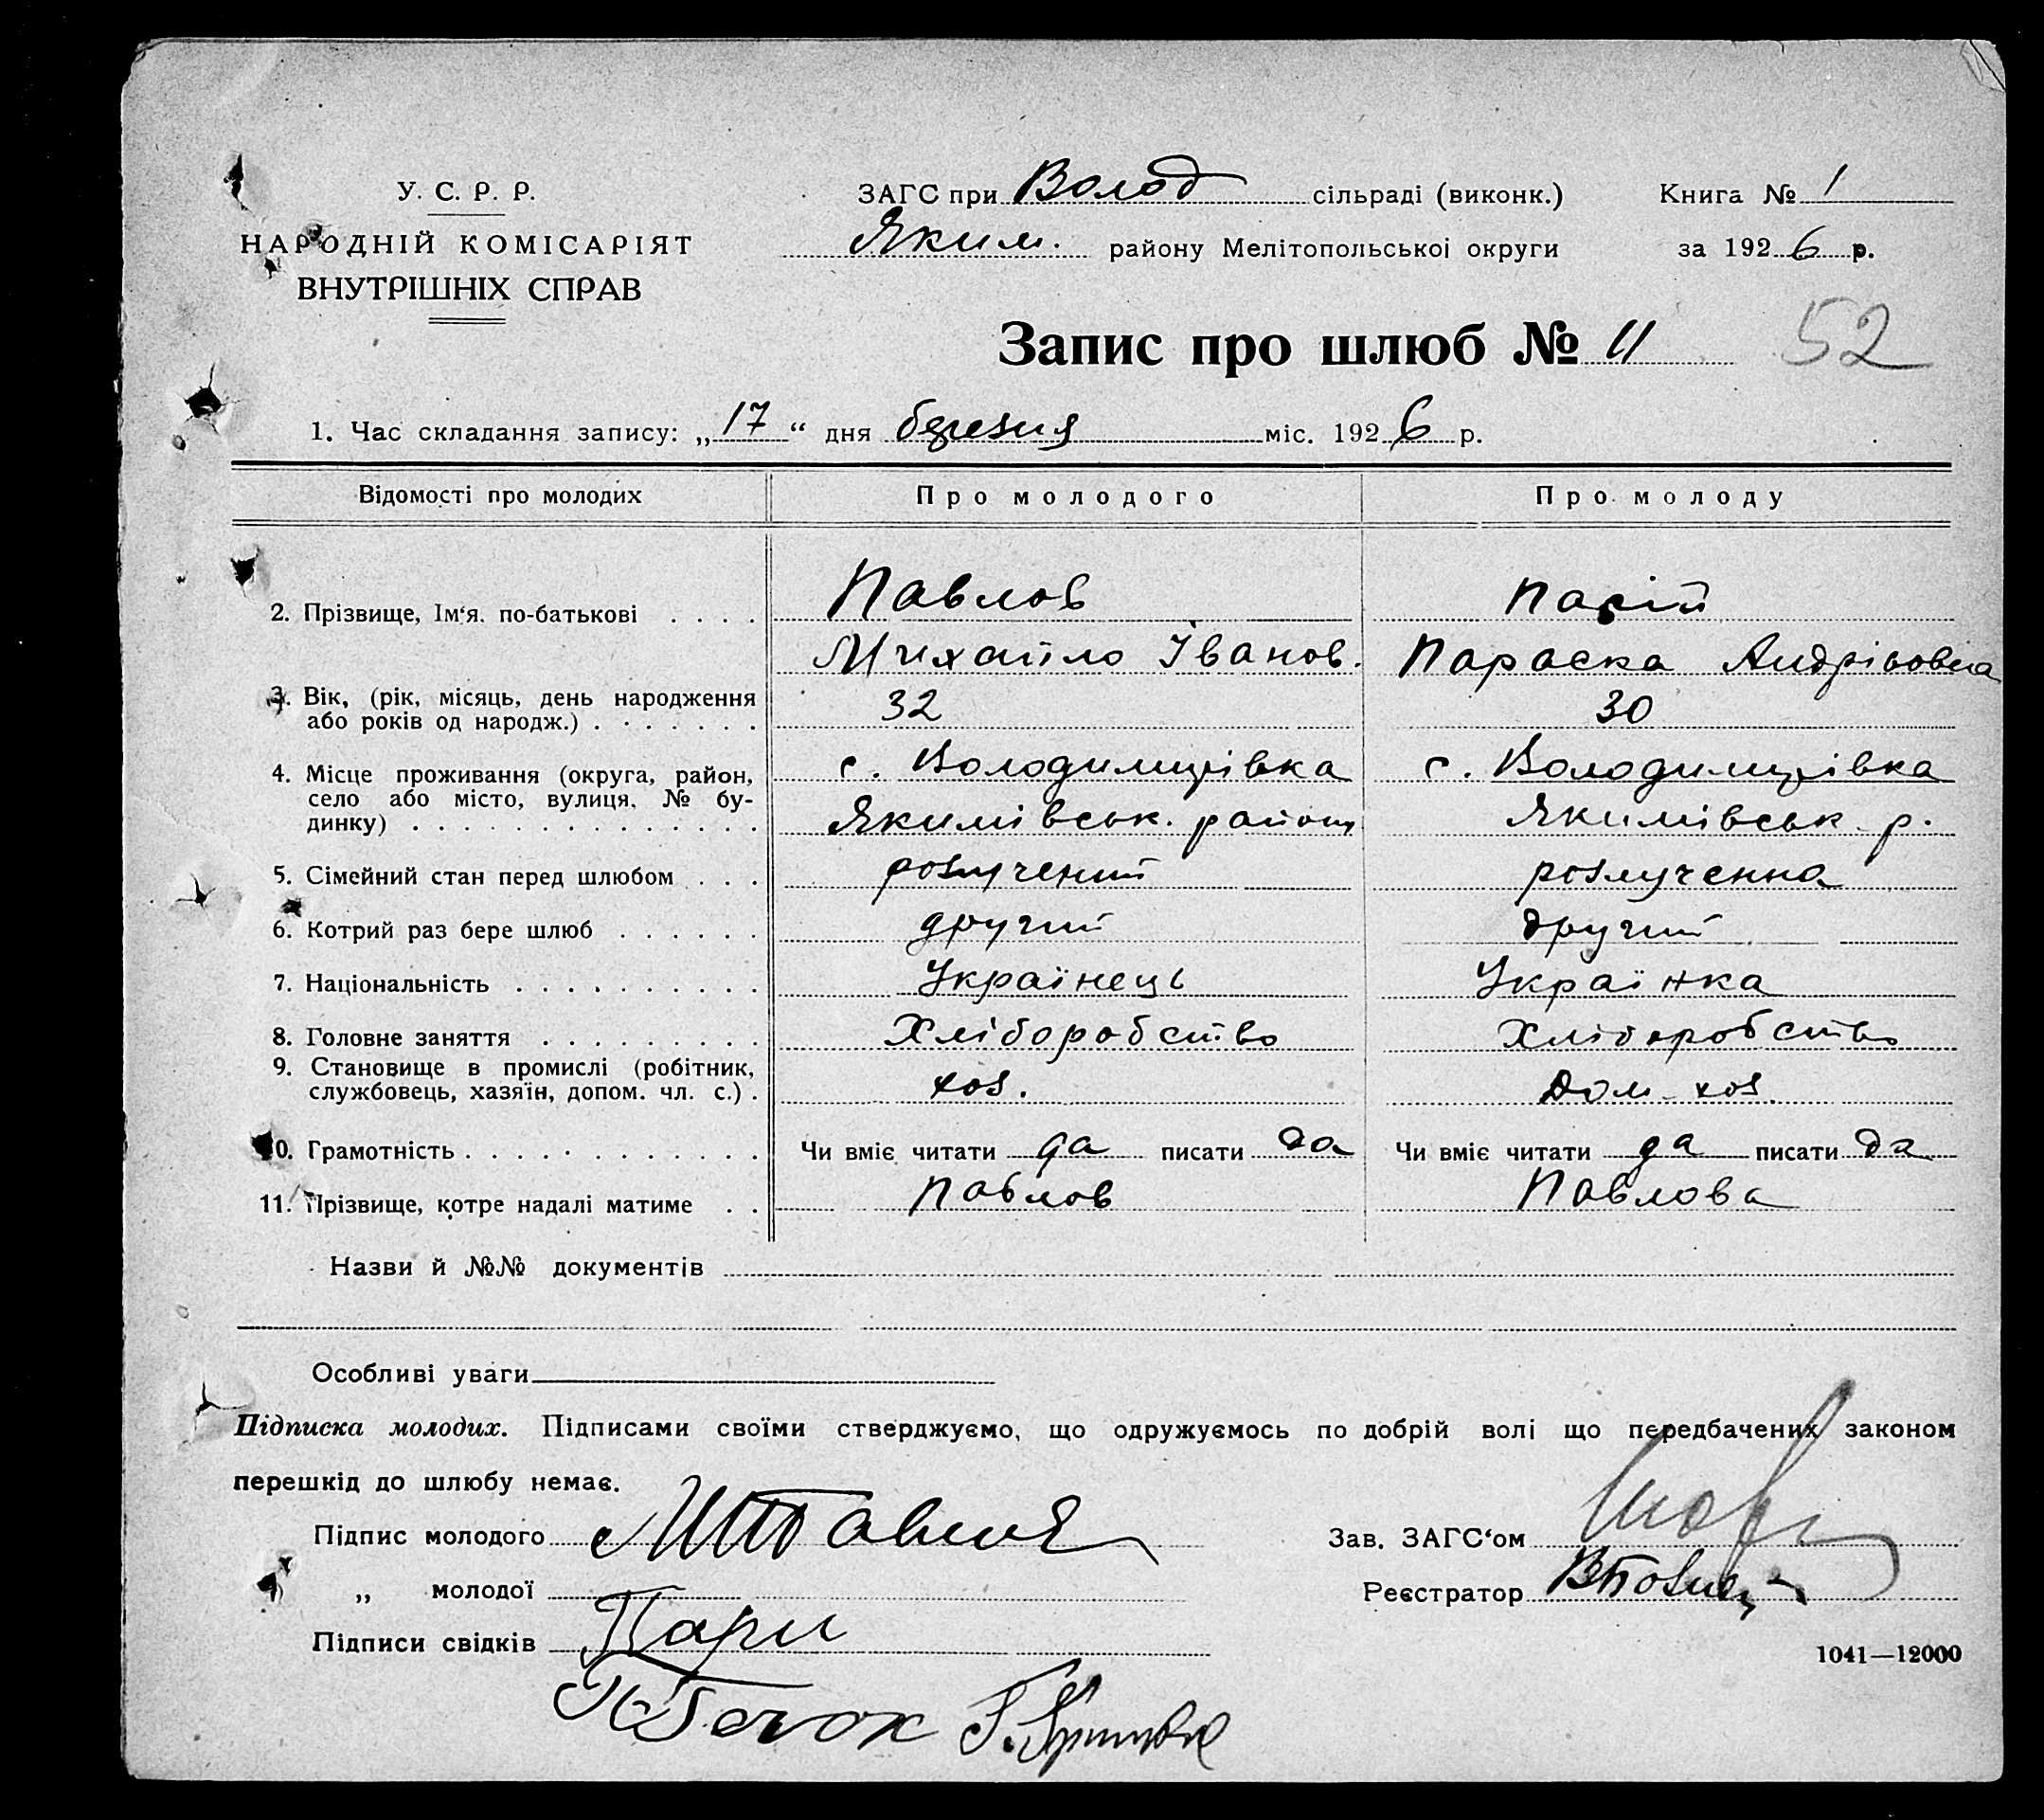 У. С. Р. Р.
НАРОДНІЙ КОМІСАРІЯТ
ВНУТРІШНІХ СПРАВ
ЗАГС при Волод сільраді (виконк.) Книга № 1
Яким. району Мелітопольської округи за 1926 р.
Запис про шлюб № 11 52
1. Час складання запису: „17“ дня березня міс. 1926 р.
Відомості про молодих Про молодого Про молоду
2. Прізвище, Ім‘я. по-батькові . . . . Павлов
Михайло Іванов. Параска Андріовна
3. Вік, (рік, місяць, день народження
або років од народж.) . . . . . . . 32 30
4. Місце проживання (округа, район, с. Володимирівка с. Володимирівка
село або місто, вулиця, № бу-
динку) . . . . . . . . . . . . . . Якимівськ. району Якимівськ. р.
5. Сімейний стан перед шлюбом . . . розлучений розлученна
6. Котрий раз бере шлюб . . . . . . другий другий
7. Національність . . . . . . . . . . Українець Українка
8. Головне заняття . . . . . . . . . Хліборобство Хліборобство
9. Становище в промислі (робітник,
службовець, хазяїн, допом. чл. с.) . хоз. Дом. хоз.
10. Грамотність . . . . . . . . . . . . Чи вміє читати да писати да Чи вміє читати да писати да
11. Прізвище, котре надалі матиме . . Павлов Павлова
Назви й №№ документів
Особливі уваги
Підписка молодих. Підписами своїми стверджуємо, що одружуємось по добрій волі що передбачених законом
перешкід до шлюбу немає.
Підпис молодого Зав. ЗАГС‘ом
„ молодої Реєстратор
Підписи свідків
1041—12000